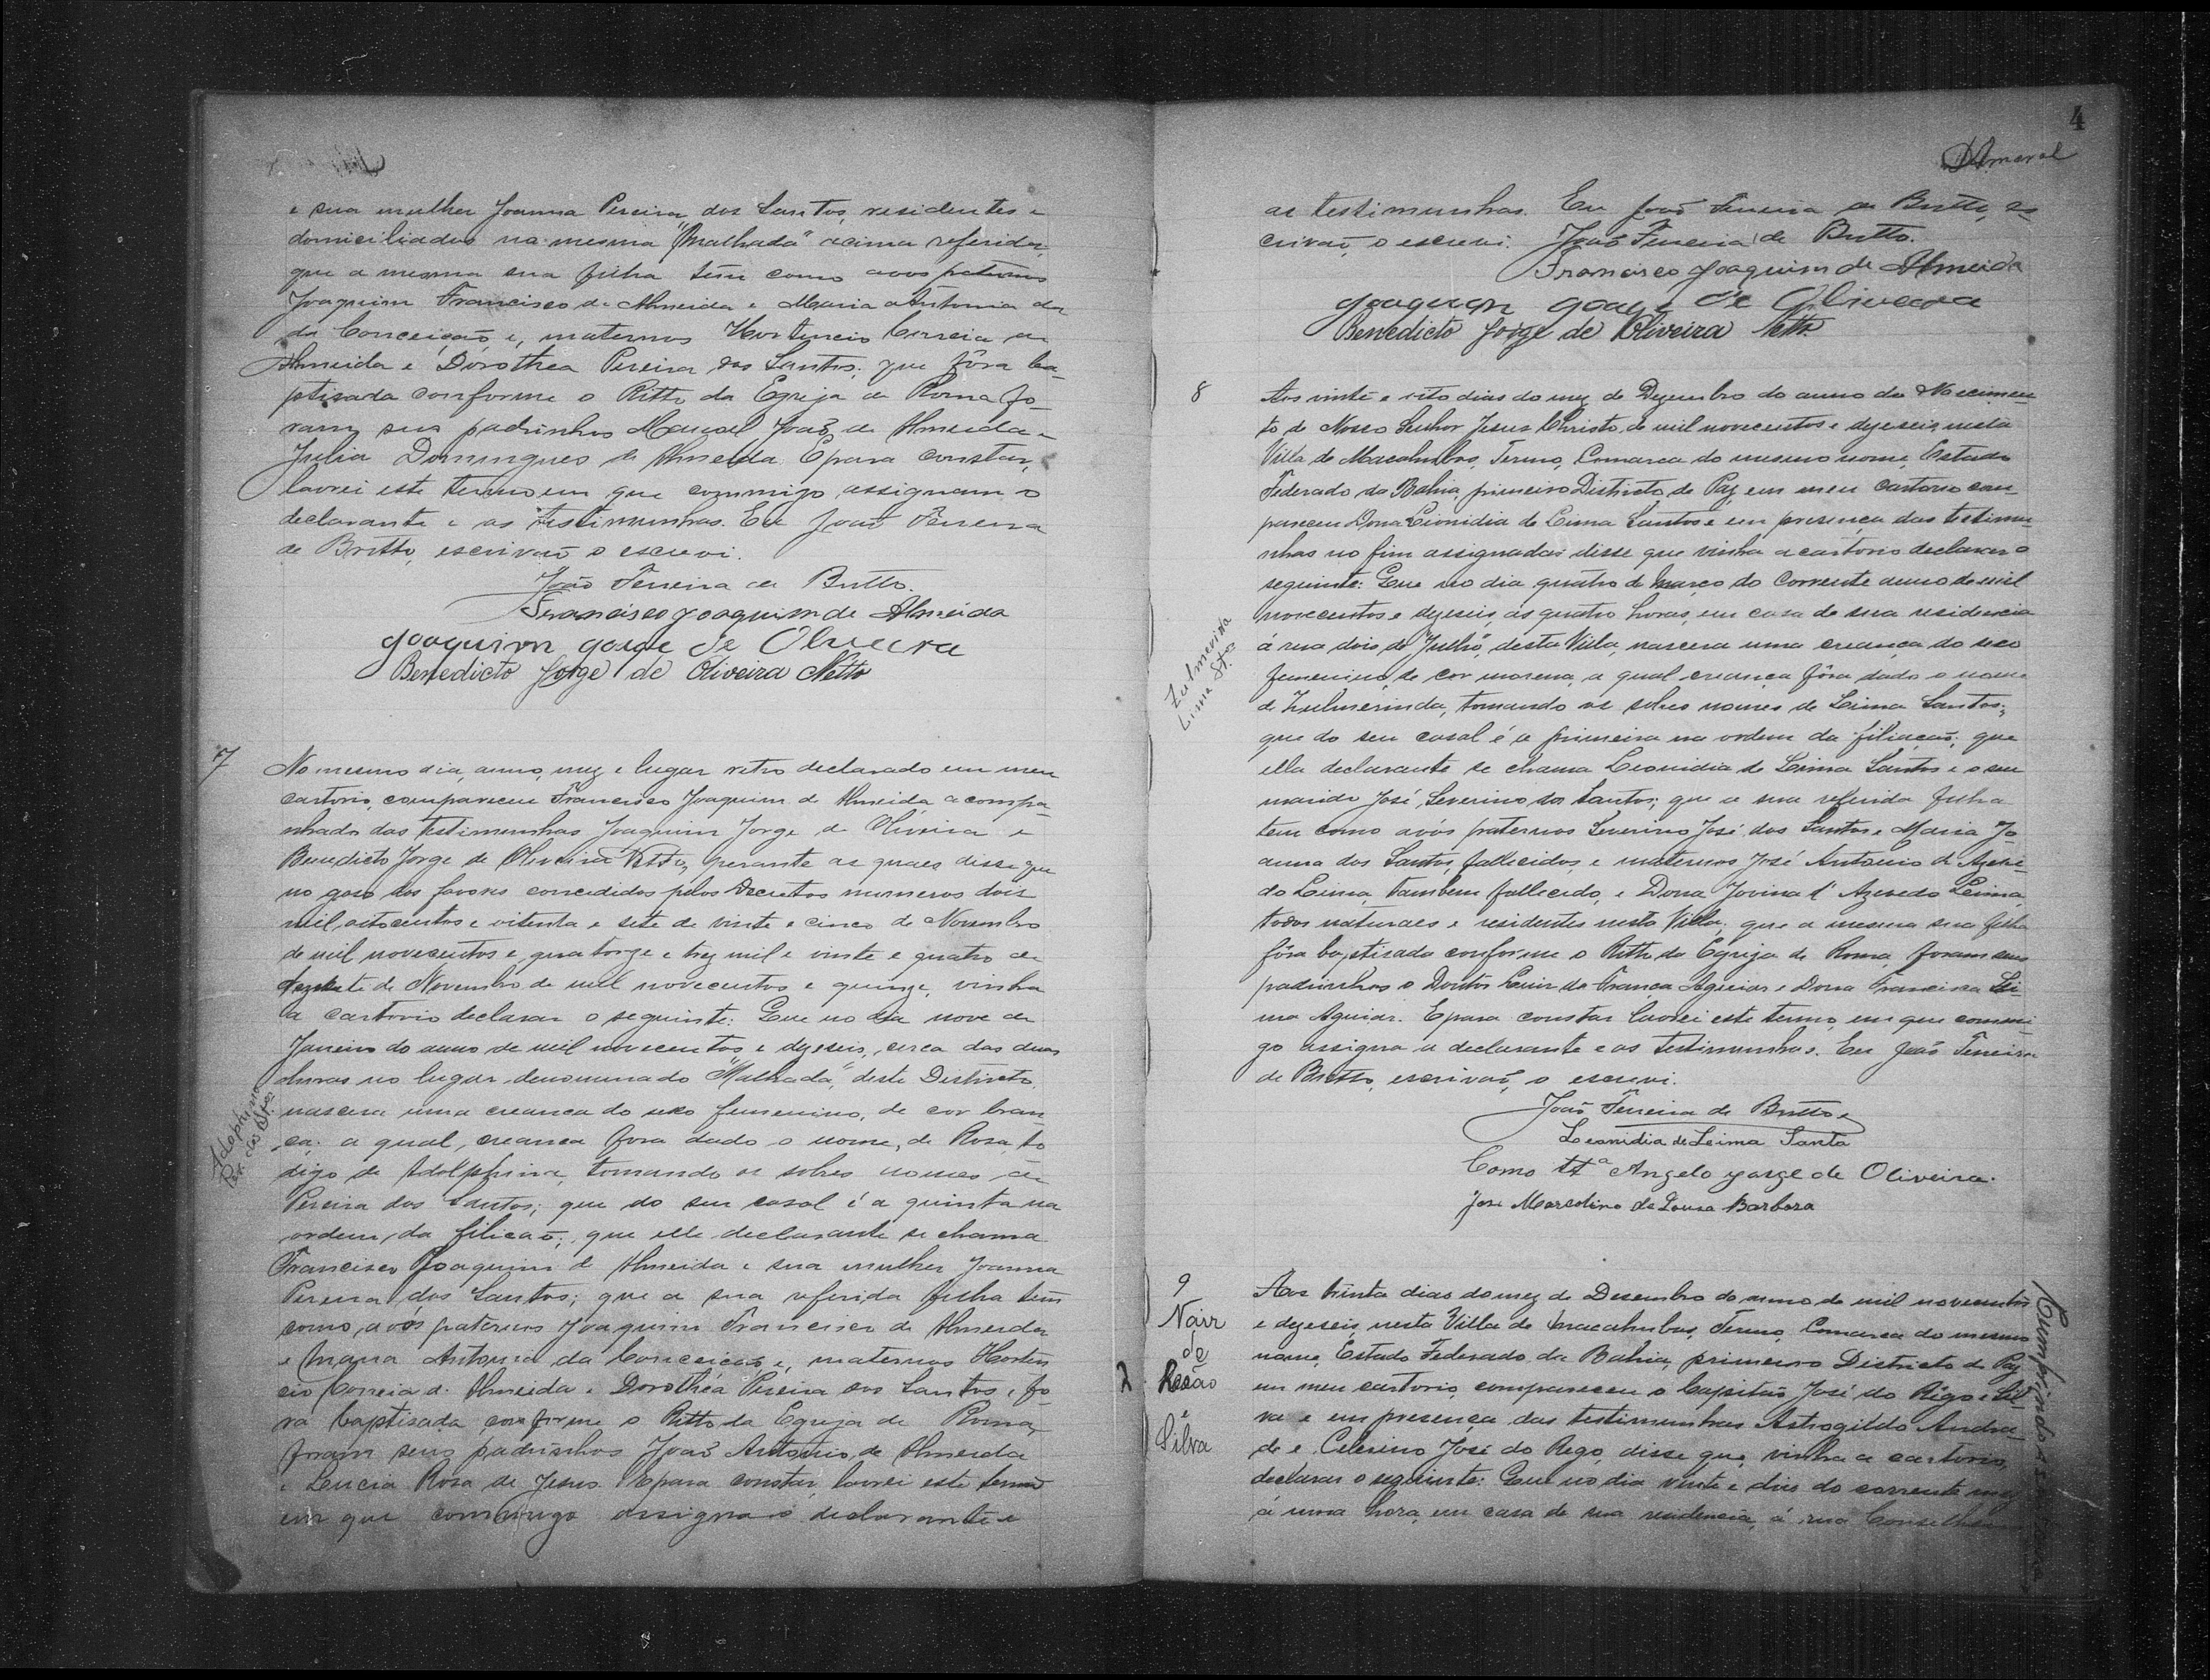 e sua mulher Joanna Pereira dos Santos, residentes e
domiciliados na mesma "Malhada" acima referida,
que a mesma sua filha tem como avos paternos
Joaquim Francisco de Almeida e Maria Antonia da
da Conceição e, maternos Hortencio Correia de
Almeida e Dorothea Pereira dos Santos; que fôra ba-
ptisada conforme o Ritto da Egreja de Roma fo-
ram seus padrinhos Manoel João de Almeida e
Julia Domingues de Almeida. E para constar,
lavrei este termo em que commigo assignam o
declarante e as testimunhas. Eu João Ferreira
de Britto, escrivão o escrevi.
João Ferreira de Britto.
Francisco Joaquim de Almeida
Joaquim Jorge de Oliveira
Benedicto Jorge de Oliveira Netto
7
No mesmo dia, anno, mez e lugar retro declarado em meu
cartorio, compareceu Francisco Joaquim de Almeida acompa-
nhado das testimunhas Joaquim Jorge de Oliveira e
Benedicto Jorge de Oliveira Netto, perante as quaes disse que
no goso dos favores concedidos pelos Decretos numeros dois
mil, oitocentos e oitenta e sete de vinte e cinco de Novembro
de mil novecentos e quatorze e trez mil e vinte e quatro de
dezesete de Novembro de mil novecentos e quinze, vinha
a cartorio declarar o seguinte: Que no dia nove de
Janeiro do anno de mil novecentos e dezeseis, cerca das duas
horas no lugar denominado "Malhada", deste Districto,
nascera uma creança do sexo femenino, de cor bran-
ca: a qual, creança fora dado o nome, de Rosa, to
digo de Adolphina, tomando os sobres nomes de
Pereira dos Santos; que do seu casal é a quinta na
ordem da filicão; que elle declarante se chama
Francisco Joaquim de Almeida e sua mulher Joanna
Pereira dos Santos; que a sua referida filha tem
como avós paternos Joaquim Francisco de Almeida
e Maria Antonia da Conceição e, maternos Horten
cio Correia de Almeida e Dorothéa Pereira dos Santos, fo-
ra baptisada conforme o Ritto da Egreja de Roma,
foram seus padrinhos João Antonio de Almeida
e Lucia Rosa de Jesus. E para constar, lavrei este termo
em que commigo assigna o declarante e
Adophina
Per. dos Stos
4
DAmaral
as testimunhas. Eu João Ferreira de Britto, es-
crivão, o escrevi. João Ferreira de Britto.
Francisco Joaquim de Almeida
Joaquim Jorge de Oliveira
Benedicto Jorge de Oliveira Netto.
8
Aos vinte e oito dias do mez de Dezembro do anno do Nascimen-
to de Nosso Senhor Jesus Christo de mil novecentos e dezeseis, nesta
Villa de Macahubas, Termo, Comarca do mesmo nome, Estado
Federado da Bahia, primeiro Districto de Paz, em meu cartorio com-
pareceu Dona Leonidia de Lima Santos e em presença das testimu-
nhas no fim assignadas disse que vinha a cartorio declarar o
seguinte: Que no dia quatro de Março do corrente anno de mil
novecentos e dezeseis, ás quatro horas, em casa de sua residencia
á rua dois de Julho, desta Villa, nascera uma creança do sexo
femenino, de cor morena, a qual creança fôra dado o nome
de Zulmerinda, tomando os sobres nomes de Lima Santos;
que do seu casal é a primeira na ordem da filiação; que
ella declarante se chama Leonidia de Lima Santos e o seu
marido José Severino dos Santos; que a sua referida filha
tem como avós paternos Severino José dos Santos e Maria Jo-
anna dos Santos, fallecidos, e maternos José Antonio de Azeve-
do Lima, tambem fallecido, e Dona Jovina d'Azevedo Lima,
todos naturaes e residentes nesta Villa; que a mesma sua filha
fôra baptisada conforme o Ritto da Egreja de Roma, foram seus
padrinhos o Doutor Luis da França Aguiar e Dona Francisca Li-
ma Aguiar. E para constar lavrei este termo, em que commi-
go assigna a declarante e as testimunhas. Eu João Ferreira
de Britto, escrivão, o escrevi.
João Ferreira de Britto
Leonidia de Leima Santa
Como ttª Angelo Jorge de Oliveira.
José Marcolino de Sousa Barbosa
Zulmerida
Lima Stos
9
Nair
do
e
Silva
Aos trinta dias do mez de Desembro do anno de mil novecentos
e dezeseis, nesta Villa de Macahubas, Termo, Comarca do mesmo
nome, Estado Federado da Bahia, primeiro Districto de Paz
em meu cartorio, compareceu o Capitão José do Rêgo e Sil-
va e em presença das testimunhas Astrogildo Andra-
de e Celerino José do Rego, disse que vinha a cartorio
declarar o seguinte: Que no dia vinte e dois do corrente mez
á uma hora, em casa de sua residencia, á rua Conselheiro
Cumprindo a